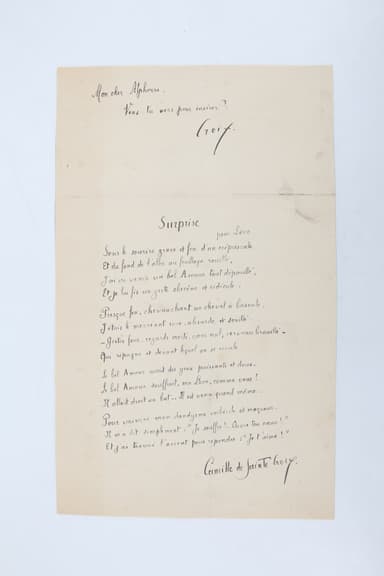 Mon cher Alphonse.
Veux tu mes
Croix.
Surprise
pour Léro
Sous le sourire grave et fou d'un crépuscule
Et du fond de l'allée au feuillage rouillé,
J'ai vu venir un bel Amour tout dépouillé,
Et je lui fis un geste extrême et ridicule.
Presque fou, chevauchant un cheval à bascule,
J'étais le mécréant absurde, et souillé
Qui répugne et devant lequel on se recule
Le bel Amour avait des yeux puissants et doux.
Le bel Amour souffrait, ma Léro, comme vous !
Il allait droit au but. Il est venu quand même.
Pour vaincre mon dandysme imbécile et moqueur,
Il m'a dit simplement : "Je souffre !
Et j'ai trouvé l'accent pour répondre : "Je t'aime !"
Camille de Sainte Croix.